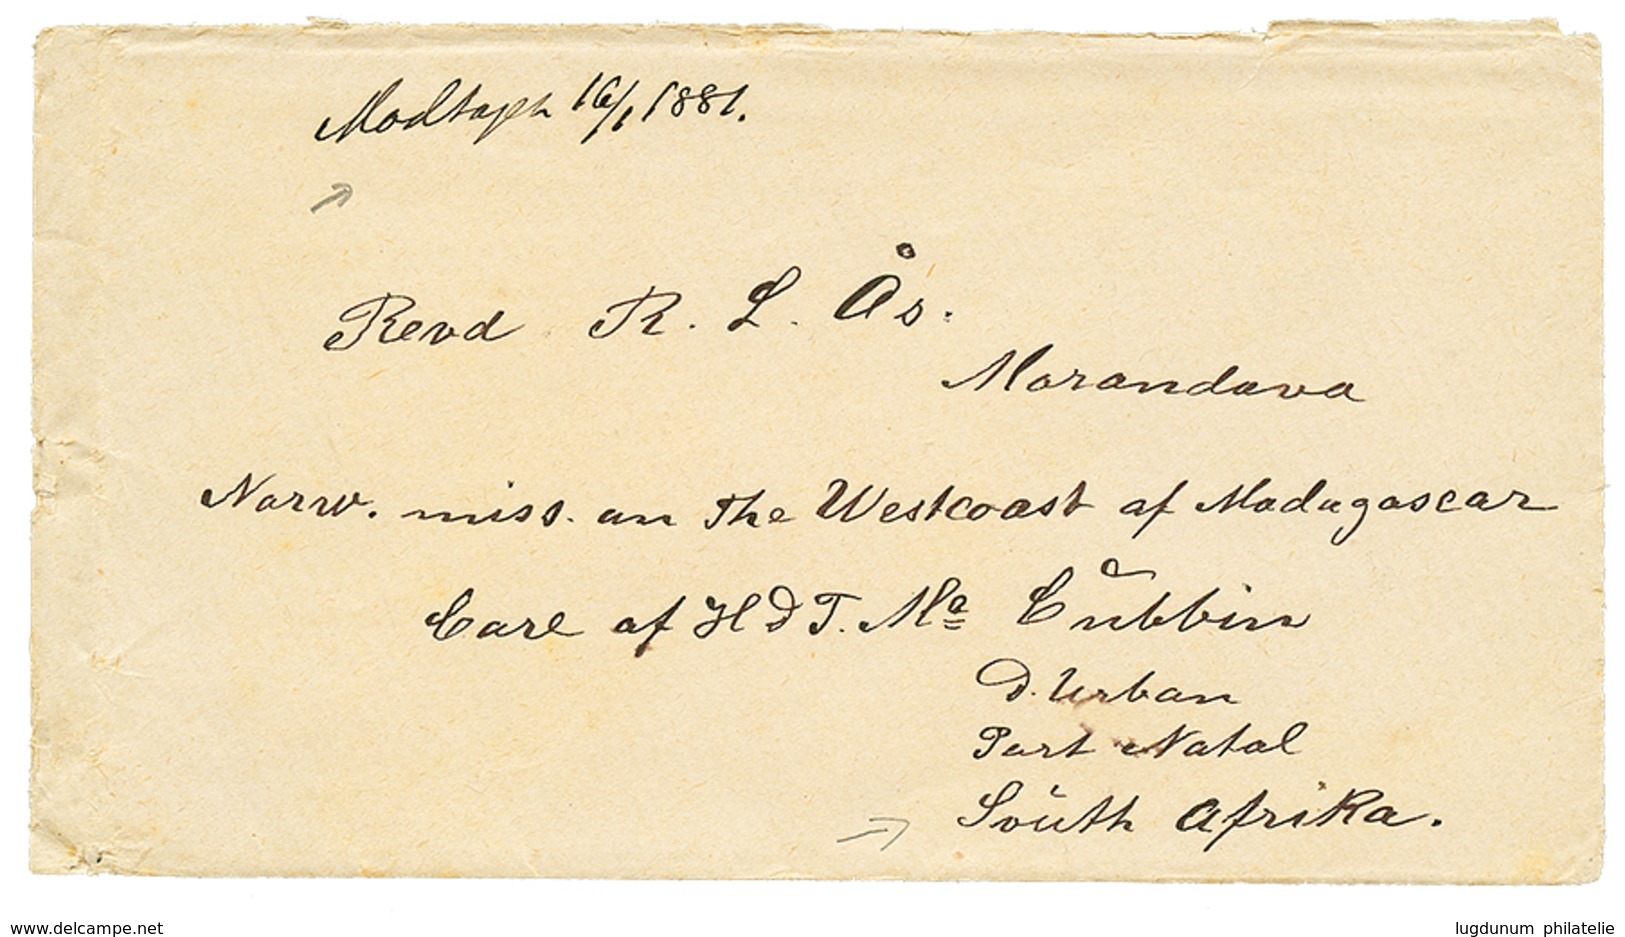 Modtaget 16/1 1881.
Revd R. L. Ås.
Morandava
Norw. miss. on the Westcoast of Madagascar
Care of H D T. Mc Cubbin
D. Urban
Port Natal
South Afrika.
www.delcampe.net
lugdunum philatelie